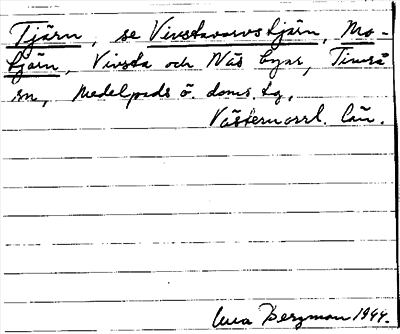 Tjärn, se Vivstavarvstjärn, Mo-
tjärn, Vivsta och Näs byar, Timrå
sn, Medelpads ö. doms. tg,
Västernorrl. län.
Bergman 1944.